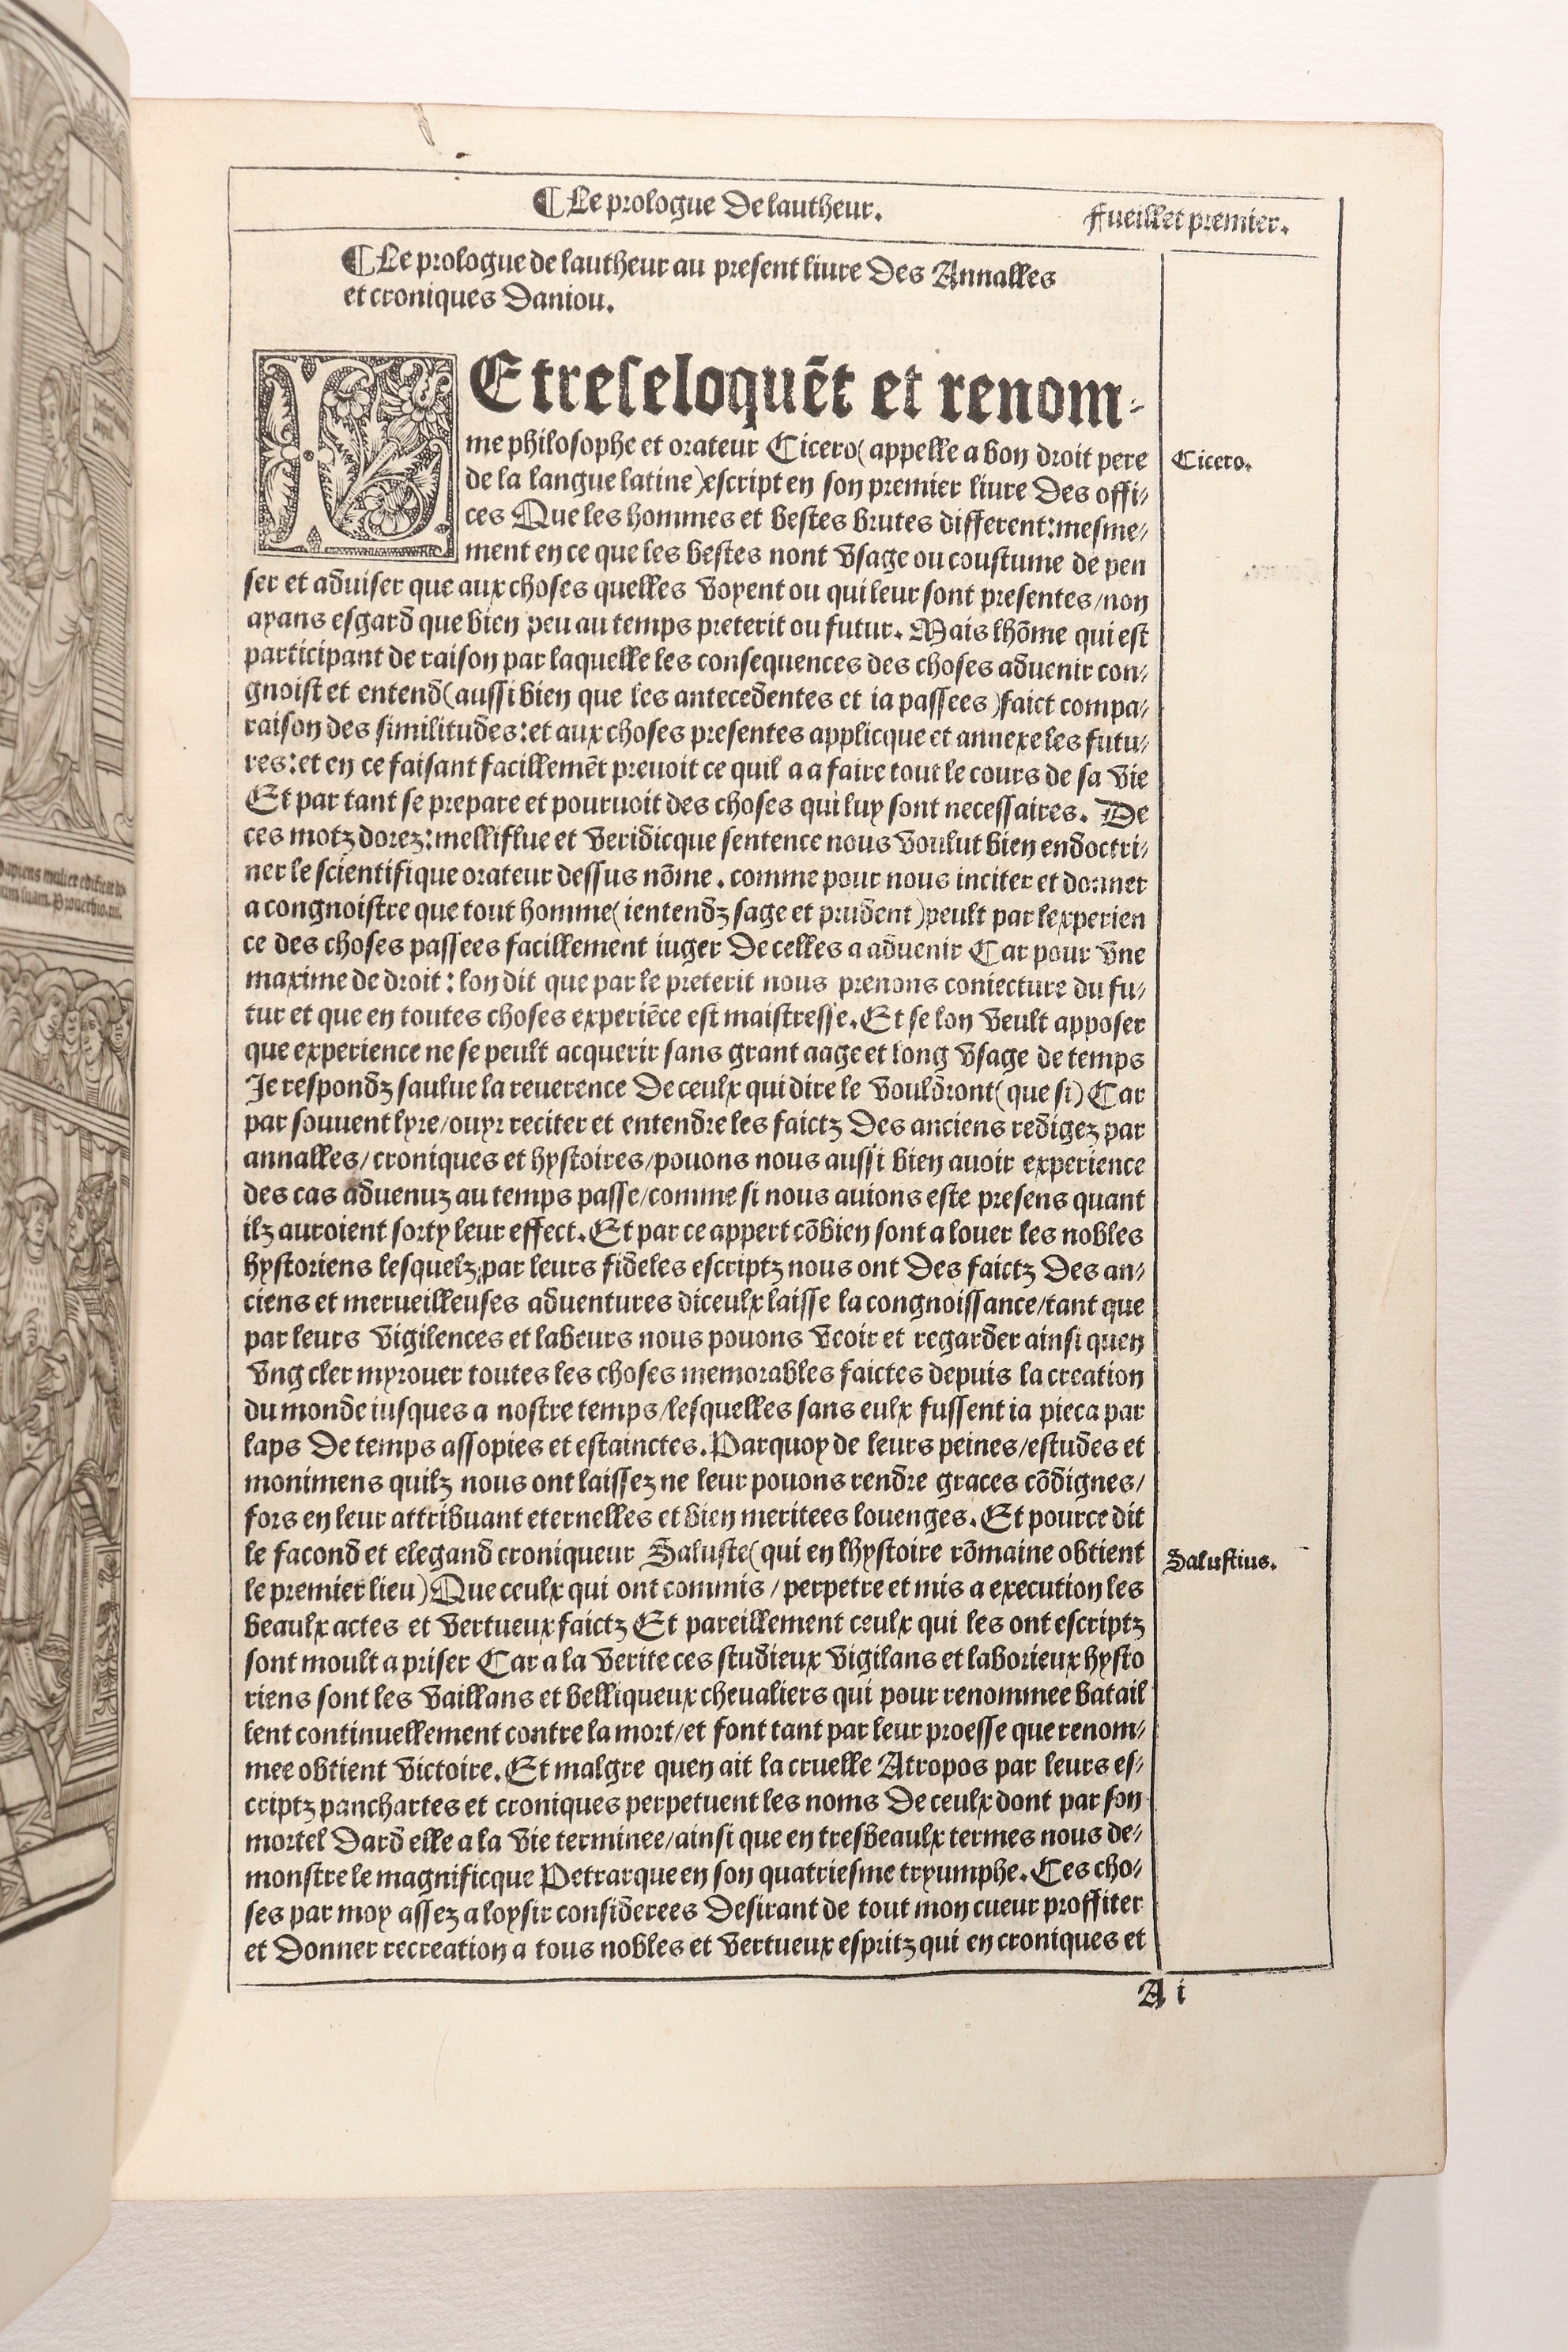 ¶ Le prologue De lautheur.
Fueillet premier.
¶ Le prologue de lautheur au present liure Des Annalles
et croniques Daniou.
LE treseloquēt et renom-
me philosophe et orateur Cicero (appelle a bon droit pere
Cicero.
de la langue latine) escript en son premier liure Des offi/
ces Que les hommes et bestes brutes different: mesme/
ment en ce que les bestes nont vsage ou coustume de pen
ser et aduiser que aux choses quelles voyent ou qui leur sont presentes/non
ayans esgard que bien peu au temps preterit ou futur. Mais lhōme qui est
participant de raison par laquelle les consequences des choses aduenir con/
gnoist et entend (aussi bien que les antecedentes et ia passees) faict compa/
raison des similitudes: et aux choses presentes applicque et annexe les futu/
res: et en ce faisant facillemēt preuoit ce quil a a faire tout le cours de sa vie
Et par tant se prepare et pouruoit des choses qui luy sont necessaires. De
ces motz dorez: melliflue et veridicque sentence nous voulut bien endoctri/
ner le scientifique orateur dessus nōme. comme pour nous inciter et donner
a congnoistre que tout homme (ientendz sage et prudent) peult par lexperien
ce des choses passees facillement iuger De celles a aduenir Car pour vne
maxime de droit: lon dit que par le preterit nous prenons coniecture du fu/
tur et que en toutes choses experiēce est maistresse. Et se lon veult apposer
que experience ne se peult acquerir sans grant aage et long vsage de temps
Je respondz saulue la reuerence De ceulx qui dire le vouldront (que si) Car
par souuent lyre/ouyr reciter et entendre les faictz Des anciens redigez par
annalles/croniques et hystoires/pouons nous aussi bien auoir experience
des cas aduenuz au temps passe/comme si nous auions este presens quant
ilz auroient sorty leur effect. Et par ce appert cōbien sont a louer les nobles
hystoriens lesquelz par leurs fideles escriptz nous ont Des faictz Des an/
ciens et merueilleuses aduentures diceulx laisse la congnoissance/tant que
par leurs vigilences et labeurs nous pouons veoir et regarder ainsi quen
vng cler myrouer toutes les choses memorables faictes depuis la creation
du monde iusques a nostre temps/lesquelles sans eulx fussent ia pieca par
laps De temps assopies et estainctes. Parquoy de leurs peines/estudes et
monimens quilz nous ont laissez ne leur pouons rendre graces cōdignes/
fors en leur attribuant eternelles et bien meritees louenges. Et pource dit
le facond et elegand croniqueur Saluste (qui en lhystoire rōmaine obtient
Salustius.
le premier lieu) Que ceulx qui ont commis / perpetre et mis a execution les
beaulx actes et vertueux faictz Et pareillement ceulx qui les ont escriptz
sont moult a priser Car a la verite ces studieux vigilans et laborieux hysto
riens sont les vaillans et belliqueux cheualiers qui pour renommee batail
lent continuellement contre la mort/et font tant par leur proesse que renom/
mee obtient victoire. Et malgre quen ait la cruelle Atropos par leurs es/
criptz panchartes et croniques perpetuent les noms De ceulx dont par son
mortel Dard elle a la vie terminee/ainsi que en tresbeaulx termes nous de/
monstre le magnificque Petrarque en son quatriesme tryumphe. Ces cho/
ses par moy assez a loysir considerees Desirant de tout mon cueur proffiter
et Donner recreation a tous nobles et vertueux espritz qui en croniques et
A i